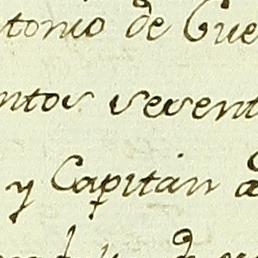 ntonio de Gue
ntos sesent
y Capitan d